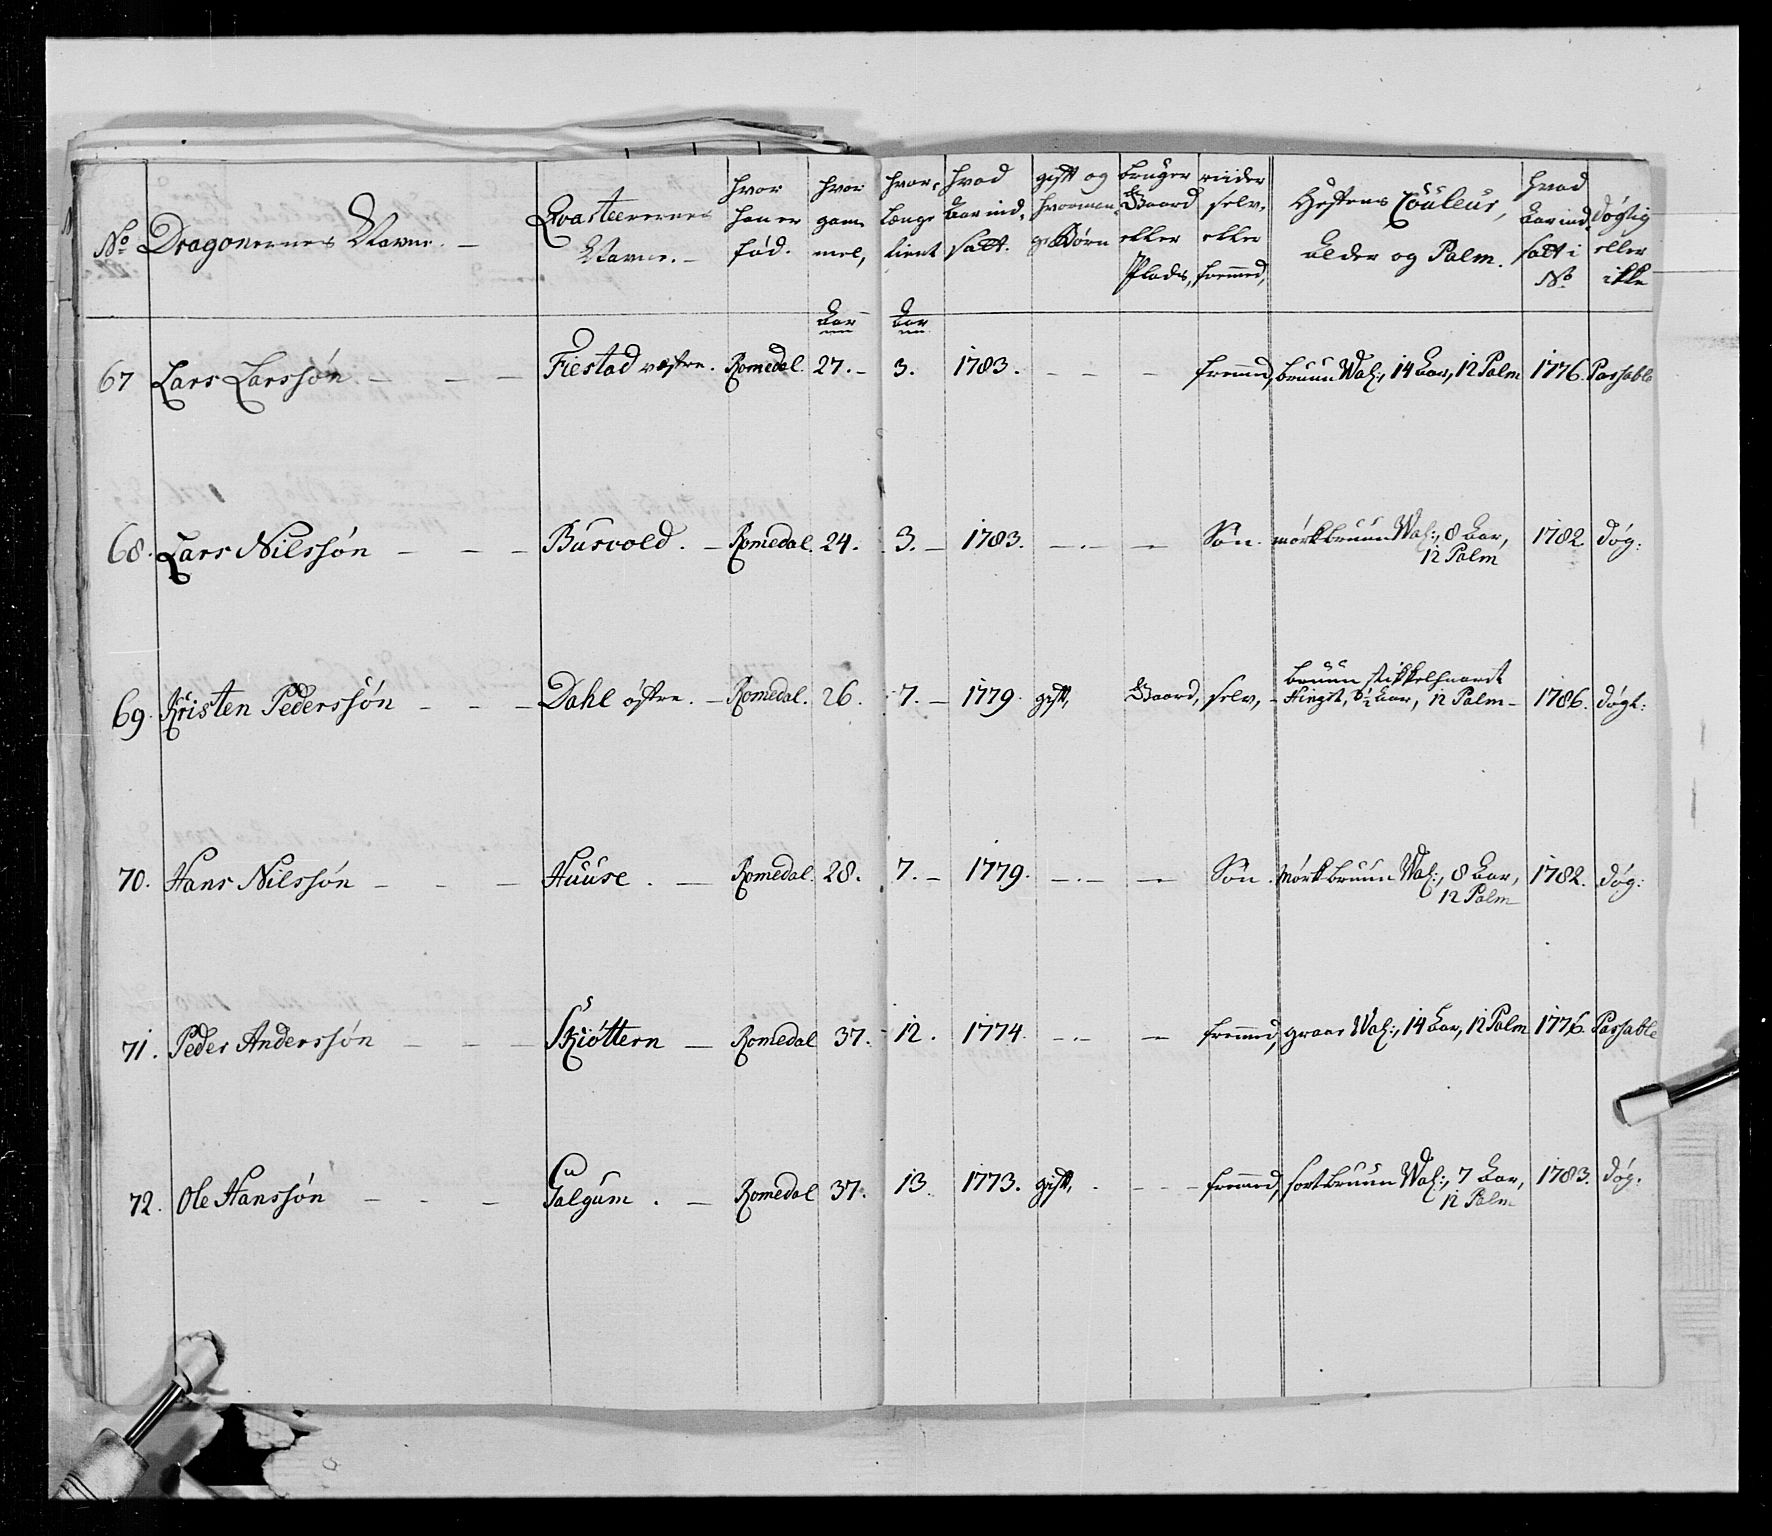 No Dragonernes Navne. — Qvarteerernes Navne. — hvor han er fød. hvor gam- mel, hvor- længe tient hvad Aar ind- satt. gift og hvorman- ge Børn bruger Gaard eller Plads, riider selv, eller fremmed, Hestens Couleur, Alder og Palm. hvad Aar ind- satt i No døgtig eller ikke
Aar Aar
67 Lars Larssøn. — — — Fiestad vestre. Romedal. 27. — 3. 1783. — — — fremmed, bruun Wal:, 14 Aar, 12 Palm 1776. Passable
68. Lars Nilssøn — — — Busvold. — Romedal. 24. 3. — 1783. — . — — Søn. mørkbruun Wal:, 8 Aar, 1782. døg:
12 Palm
69. Kristen Pederssøn — — — Dahl østre. — Romedal. 26. 7. — 1779. gift, Gaard, selv, bruun stikkelhaardt
Hingst, 5½ Aar, 12 Palm — 1786. døgt:
70. Hans Nilssøn — — — Huuse. — Romedal. 28. 7. — 1779. — . — — Søn. mørkbruun Wal:, 8 Aar, 1782. døg:
12 Palm
71. Peder Anderssøn — — — Skiøttern — Romedal 37. 12. 1774. — . — — fremmed, graae Wal:, 14 Aar, 12 Palm 1776. Passable
72. Ole Hanssøn — — — Galgum. — Romedal 37. 13. 1773. gift, . — — — fremmed, sortbruun Wal:, 7 Aar, 1783. døg.
12 Palm